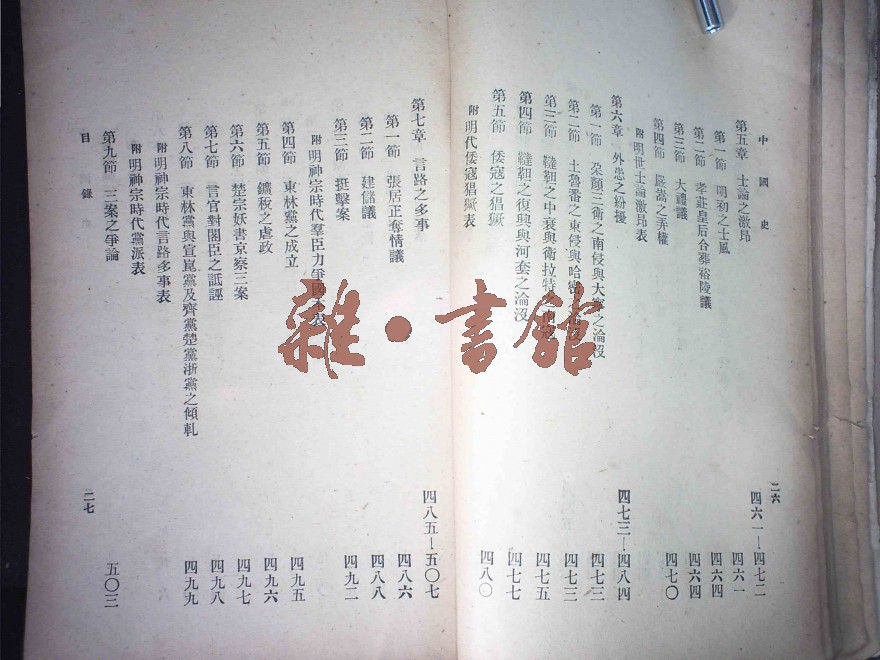 中國史
二六
第五章 士論之激昂 四六一－四七二
第一節 明初之士風 四六一
第二節 孝莊皇后合葬裕陵議 四六四
第三節 大禮議 四六四
第四節 嚴嵩之弄權 四七〇
附明世士論激昂表
第六章 外患之紛擾 四七三－四八四
第一節 朶顏三衛之南侵與大寧之淪沒 四七三
第二節 土魯番之東侵與哈密之淪沒 四七三
第三節 韃靼之中衰與衛拉特之 四七五
第四節 韃靼之復興與河套之淪沒 四七七
第五節 倭寇之猖獗 四八〇
附明代倭寇猖獗表
第七章 言路之多事 四八五－五〇七
第一節 張居正奪情議 四八六
第二節 建儲議 四八八
第三節 挺擊案 四九二
附明神宗時代羣臣力爭國本表
第四節 東林黨之成立 四九五
第五節 鑛稅之虐政 四九六
第六節 楚宗妖書京察三案 四九七
第七節 言官對閣臣之詆誣 四九八
第八節 東林黨與宣崑黨及齊黨楚黨浙黨之傾軋 四九九
附明神宗時代言路多事表
附明神宗時代黨派表
第九節 三案之爭論 五〇三
目錄
二七
雜·書館